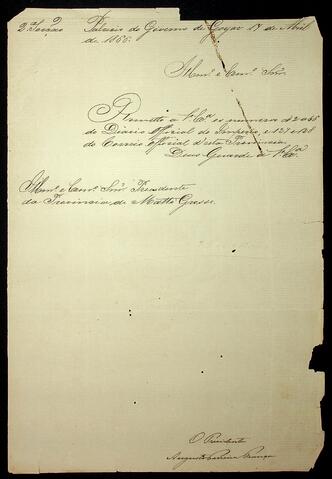 2ª Secção Palacio do Governo de Goyaz 17 de Abril
de 1866.
Illmº e Exmº Snr.
Remetto á V. Exª os numeros 42 a 65
do Diario Official do Imperio, e 127 e 128
do Correio Official d'esta Provincia.
Deus Guarde á V. Exª.
Illmº e Exmº Snr. Presidente
da Provincia de Matto Grosso.
O Presidente
Augusto Ferreira França